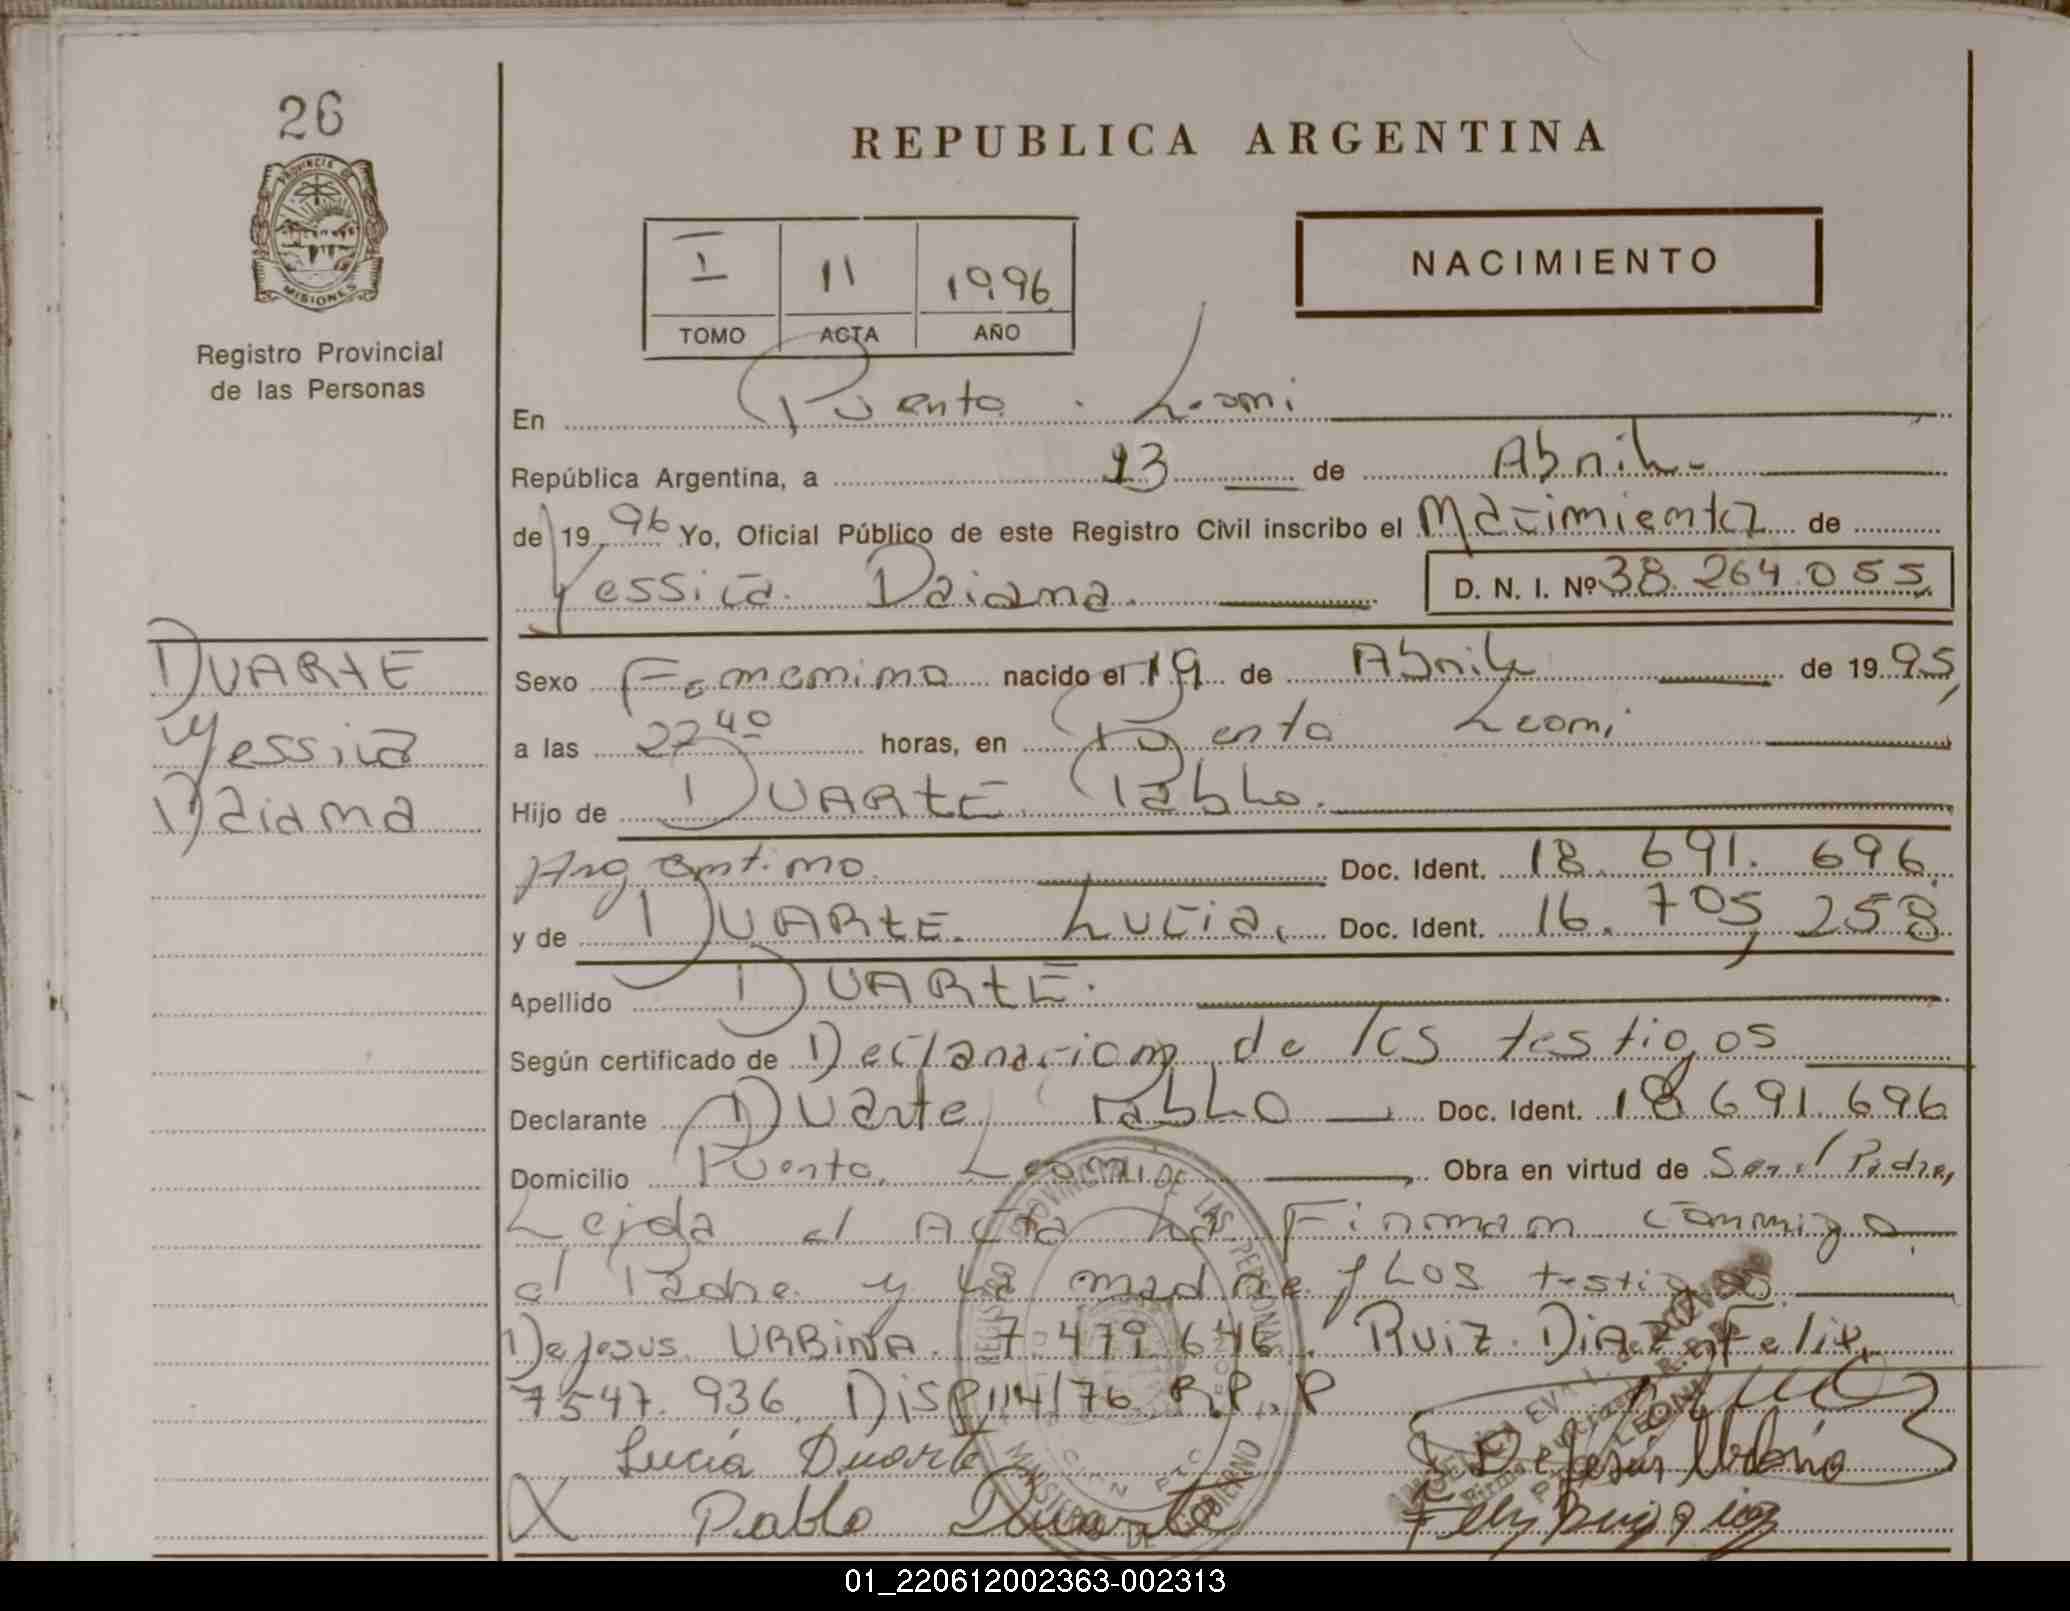 26
PROVINCIA DE
MISIONES
Registro Provincial
de las Personas
DUARTE
Yessica
Daiana
REPUBLICA ARGENTINA
I 11 1996
TOMO ACTA AÑO
NACIMIENTO
En Puerto Leoni
República Argentina, a 23 de Abril
de 19 96 Yo, Oficial Público de este Registro Civil inscribo el Nacimiento de
Yessica Daiana D. N. I. Nº 38.264.055
Sexo Femenino nacido el 19 de Abril de 19 95
a las 22 40 horas, en Puerto Leoni
Hijo de DUARTE Pablo.
Argentino. Doc. Ident. 18.691.696
y de DUARTE Lucia, Doc. Ident. 16.705,258
Apellido DUARTE.
Según certificado de Declaracion de los testigos
Declarante Duarte Pablo Doc. Ident. 18 691 696
Domicilio Puerto Leoni Obra en virtud de Ser el Padre,
Leida el Acta La Firman conmigo
el Padre y La madre y Los testigos
De Jesus URBINA. 7.479.646. Ruiz Diaz Felix,
7547.936. Disp 114/76 R.P.P
Lucia Duarte
X Pablo Duarte
REGISTRO PROVINCIAL DE LAS PERSONAS
MINISTERIO DE GOBIERNO
01_220612002363-002313